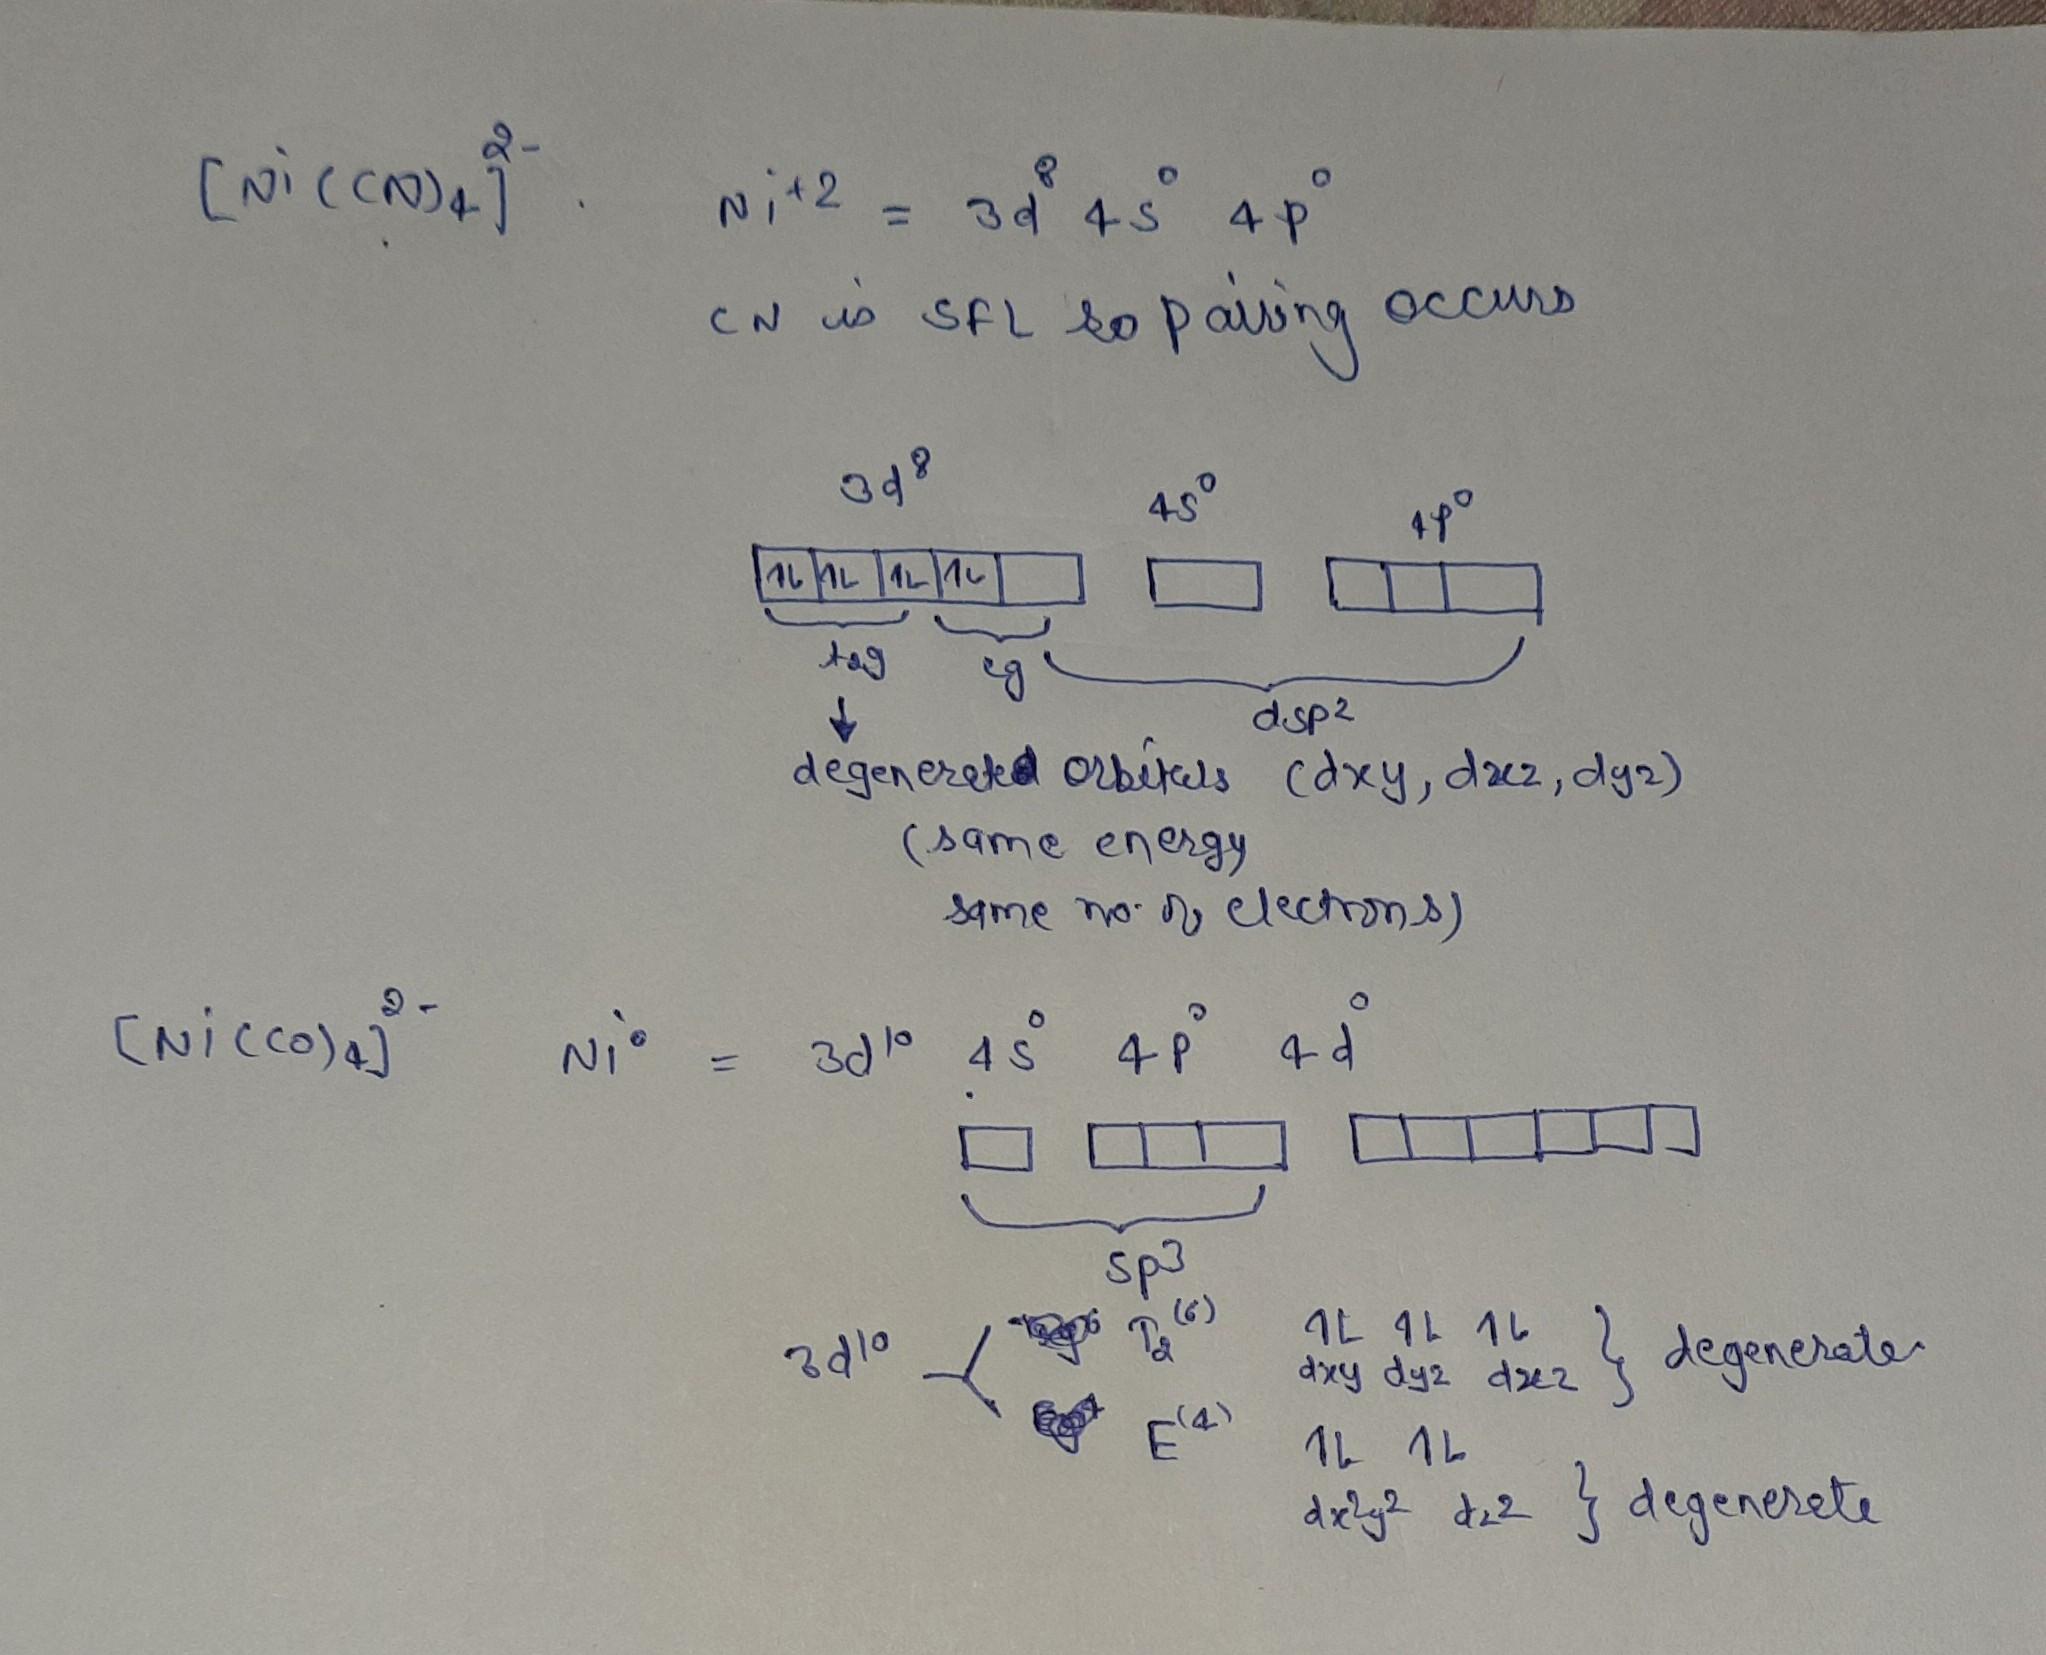 [Ni(CN)4]2-. Ni+2 = 3d8 4s0 4p0
CN is SFL so pairing occurs
3d8 4s0 4p0
1L 1L 1L 1L
t2g eg dsp2
↓
degenerated orbitals (dxy, dxz, dyz)
(same energy
same no. of electrons)
[Ni(CO)4]2- Ni0 = 3d10 4s0 4p0 4d0
sp3
3d10 T2(6) 1L 1L 1L } degenerate
dxy dyz dxz
E(4) 1L 1L
dx2y2 dz2 } degenerete